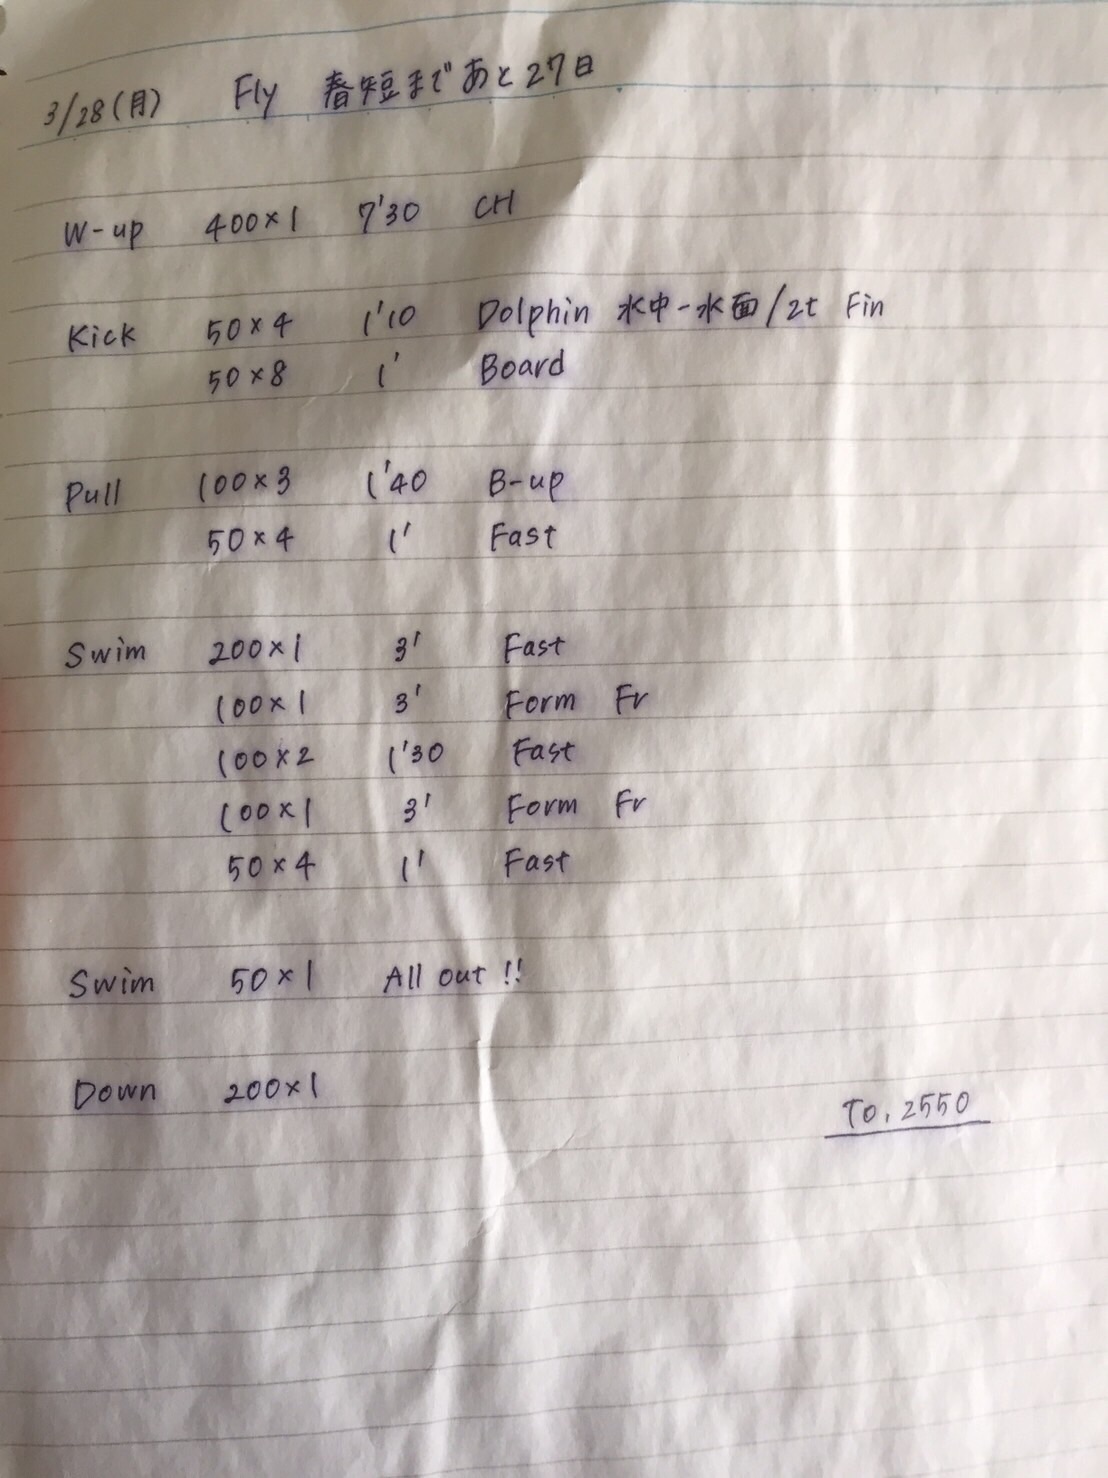 3/28(月) Fly 春短まであと27日
W-up 400×1 7'30 CH
Kick 50×4 1'10 Dolphin 水中-水面/2t Fin
50×8 1' Board
Pull 100×3 1'40 B-up
50×4 1' Fast
Swim 200×1 3' Fast
100×1 3' Form Fr
100×2 1'30 Fast
100×1 3' Form Fr
50×4 1' Fast
Swim 50×1 All out !!
Down 200×1
To. 2550